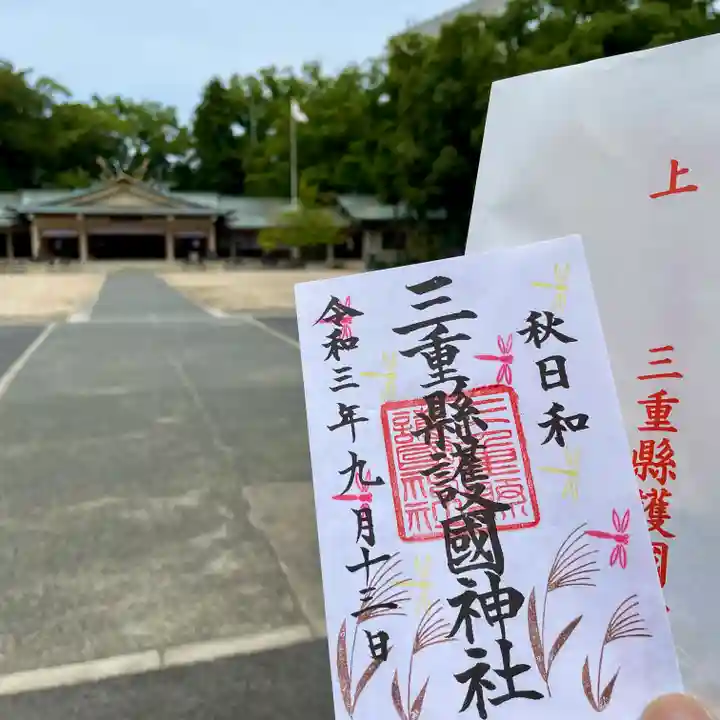 秋日和
三重縣護國神社
令和三年九月十三日
上
三重縣護國